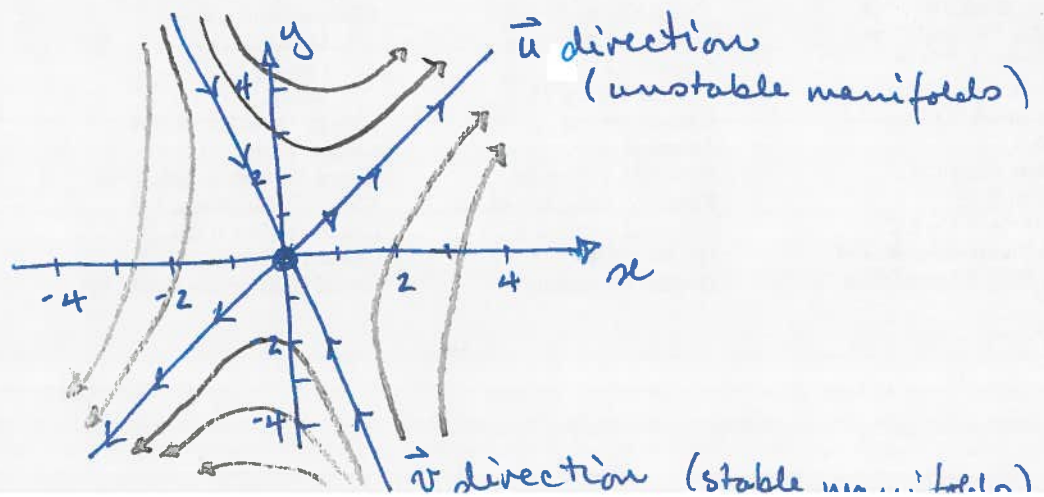 y
u⃗ direction
(unstable manifolds)
4
2
x
-4
-2
2
4
2
-4
v⃗ direction (stable manifolds)